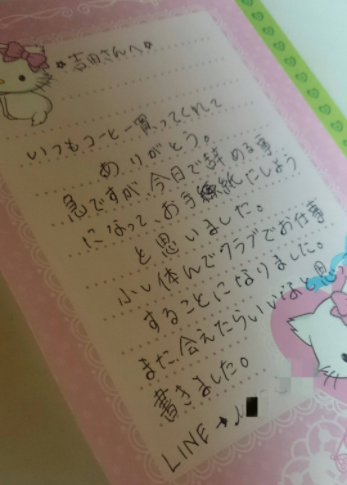 ☆吉田さんへ☆
いつもコーヒー買ってくれて
ありがとう。
急ですが、今日で辞める事
になって、お手紙にしよう
と思いました。
少し休んでクラブでお仕事
することになりました。
また会えたらいいなと思い
書きました。
LINE→♪